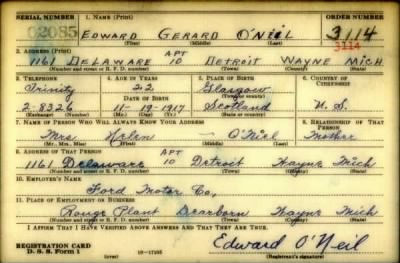 SERIAL NUMBER 1. NAME (Print) ORDER NUMBER
02085 EDWARD GERARD O'NEIL 3114
(First) (Middle) (Last) 3114
2. ADDRESS (Print) APT
1161 DELAWARE 10 DETROIT WAYNE MICH
(Number and street or R. F. D. number) (Town) (County) (State)
3. TELEPHONE 4. AGE IN YEARS 5. PLACE OF BIRTH 6. COUNTRY OF CITIZENSHIP
Trinity 22 Glasgow
DATE OF BIRTH (Town or county)
2-8326 11-19-1917 Scotland U. S.
(Mo.) (Day) (Yr.) (State or country)
7. NAME OF PERSON WHO WILL ALWAYS KNOW YOUR ADDRESS 8. RELATIONSHIP OF THAT PERSON
Mrs Helen — O'Niel Mother
(Mr., Mrs., Miss) (First) (Middle) (Last)
9. ADDRESS OF THAT PERSON APT
1161 Delaware 10 Detroit Wayne Mich
(Number and street or R. F. D. number) (Town) (County) (State)
10. EMPLOYER'S NAME
Ford Motor Co,
11. PLACE OF EMPLOYMENT OR BUSINESS
Rouge Plant Dearborn Wayne Mich
(Number and street or R. F. D. number) (Town) (County) (State)
I AFFIRM THAT I HAVE VERIFIED ABOVE ANSWERS AND THAT THEY ARE TRUE.
REGISTRATION CARD Edward O'Neil
D. S. S. Form 1 (over) 16—17105 (Registrant's signature)